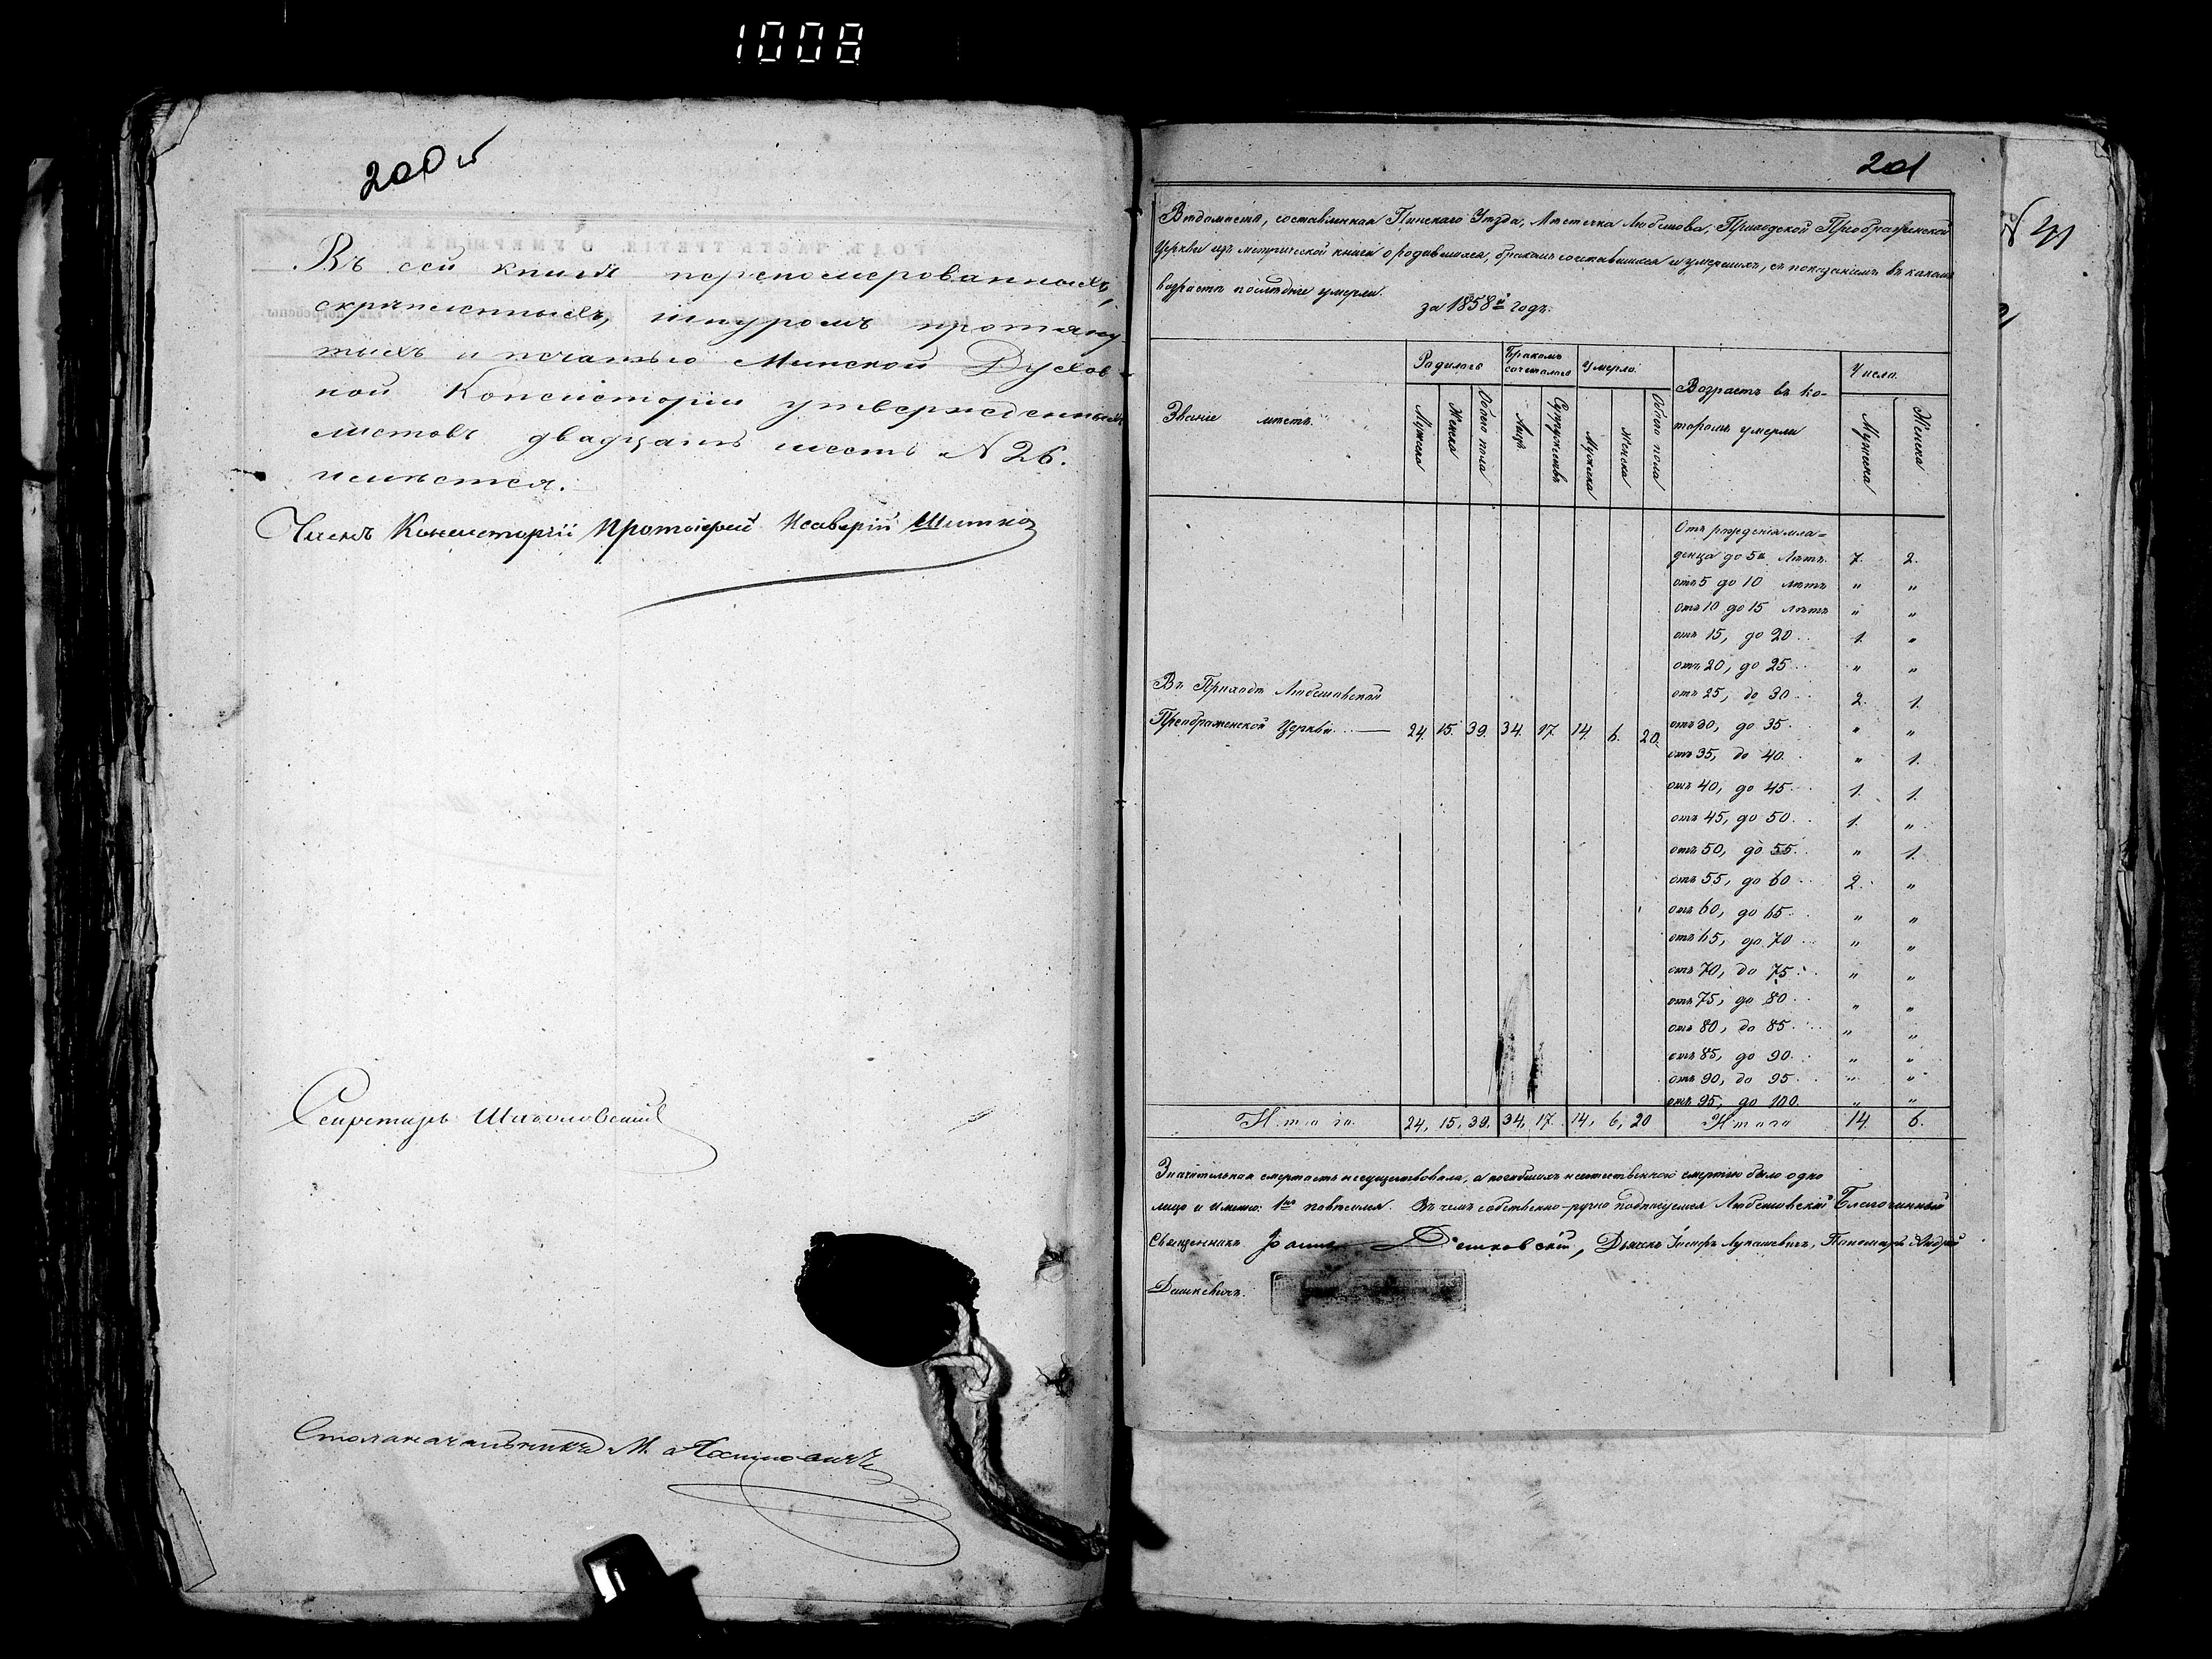 1008
200 об
Въ сей книгѣ перепомерованныхъ,
скрѣпленныхъ, шнуромъ протяну-
тыхъ и печатью Минской Духов-
ной Консисторіи утвержденныхъ
листовъ двадцать шесть N 26.
имѣется.
Членъ Консисторіи Протоіерей
Секретарь
Столоначальникъ М.
201
Вѣдомость, составленная Пинскаго Уѣзда, Мѣстечка Любешова, Приходской Преображенской
Церкви изъ метрической книги о родившихся, бракомъ сочетавшихся и умершихъ, съ показаніемъ въ какомъ
возрастѣ послѣдніе умерли.
за 1858й годъ.
Званіе мѣстъ.
Родилось
Бракомъ сочеталось
Умерло
Возрастъ въ ко-
торомъ умерли
Число.
Мужска
Женска
Обоего пола
Лицъ
Супружествъ
Мужска
Женска
Обоего пола
Мужска
Женска
Отъ рожденія мла-
денца до 5и Лѣтъ. 7. 2.
отъ 5 до 10 лѣтъ " "
отъ 10 до 15 лѣтъ " "
отъ 15, до 20 .. 1. "
отъ 20, до 25 .. " "
отъ 25, до 30 .. 2. 1.
Въ Приходѣ Любешовской
Преображенской Церкви. 24. 15. 39. 34. 17. 14. 6. 20.
отъ 30, до 35 . " "
отъ 35, до 40. " 1.
отъ 40, до 45 . 1. 1.
отъ 45, до 50. 1. "
отъ 50, до 55. " 1.
отъ 55, до 60 .. 2. "
отъ 60, до 65 . " "
отъ 65, до 70 .. " "
отъ 70, до 75 . " "
отъ 75, до 80 .. " "
отъ 80, до 85 .. " "
отъ 85, до 90. " "
отъ 90, до 95 . " "
отъ 95, до 100. " "
Итого 24, 15, 39. 34, 17. 14, 6, 20 Итого 14. 6.
Значительная смертность не существовала, а погибшихъ неестественною смертію было одно
лицо и именно: 1нъ повѣсился. Въ чемъ собственно-ручно подписуемся Любешовскій Благочинный
Священникъ Дьякъ Іосифъ Лукашевичъ, Пономарь Андрей
Дашкевичъ.